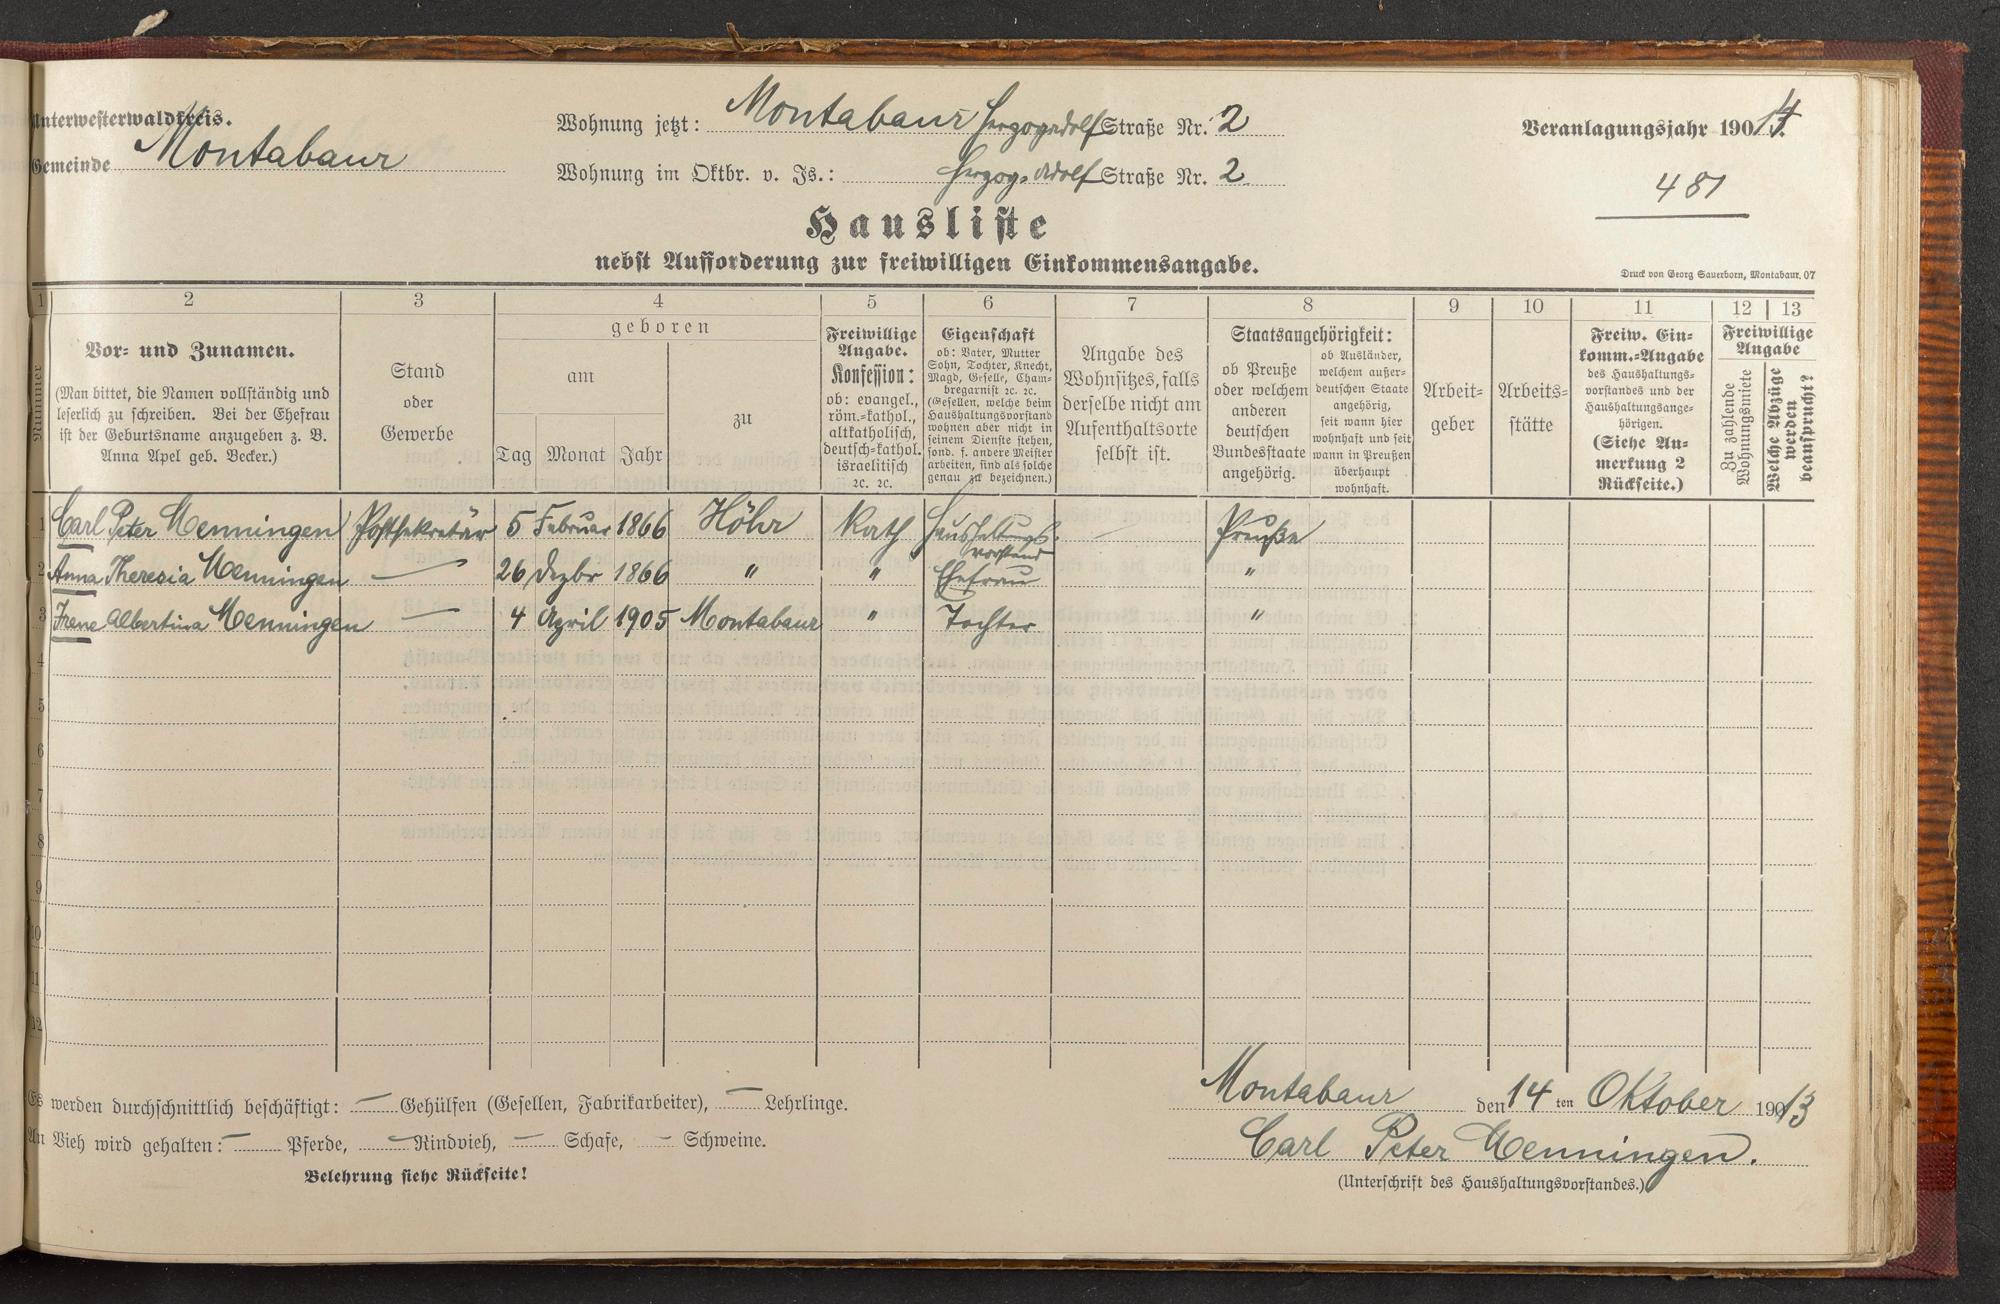 Unterwesterwaldkreis.
Gemeinde Montabaur
Wohnung jetzt: Montabaur Herzogadolf Straße Nr. 2
Wohnung im Oktbr. v. Js.: Herzog-Adolf Straße Nr. 2
Veranlagungsjahr 1914.
481
Hausliste
nebst Aufforderung zur freiwilligen Einkommensangabe.
Druck von Georg Sauerborn, Montabaur. 07
1 2 3 4 5 6 7 8 9 10 11 12 13
Nummer
Vor- und Zunamen.
(Man bittet, die Namen vollständig und
leserlich zu schreiben. Bei der Ehefrau
ist der Geburtsname anzugeben z. B.
Anna Apel geb. Becker.)
Stand
oder
Gewerbe
geboren
am
Tag Monat Jahr
zu
Freiwillige
Angabe.
Konfession:
ob: evangel.,
röm.-kathol.,
altkatholisch,
deutsch-kathol.
israelitisch
ꝛc. ꝛc.
Eigenschaft
ob: Vater, Mutter
Sohn, Tochter, Knecht,
Magd, Geselle, Cham-
bregarnist ꝛc. ꝛc.
(Gesellen, welche beim
Haushaltungsvorstand
wohnen aber nicht in
seinem Dienste stehen,
sond. f. andere Meister
arbeiten, sind als solche
genau zu bezeichnen.)
Angabe des
Wohnsitzes, falls
derselbe nicht am
Aufenthaltsorte
selbst ist.
Staatsangehörigkeit:
ob Preuße
oder welchem
anderen
deutschen
Bundesstaate
angehörig.
ob Ausländer,
welchem außer-
deutschen Staate
angehörig,
seit wann hier
wohnhaft und seit
wann in Preußen
überhaupt
wohnhaft.
Arbeit-
geber
Arbeits-
stätte
Freiw. Ein-
komm.-Angabe
des Haushaltungs-
vorstandes und der
Haushaltungsange-
hörigen.
(Siehe An-
merkung 2
Rückseite.)
Freiwillige
Angabe
Zu zahlende
Wohnungsmiete
Welche Abzüge
werden
beansprucht?
1 Carl Peter Menningen Postsekretär 5 Februar 1866 Höhr Kath Haushaltungs- — Preuße
vorstand
2 Anna Theresia Menningen — 26 Dezbr 1866 " " Ehefrau "
3 Irene Albertina Menningen — 4 April 1905 Montabaur " Tochter "
4
5
6
7
8
9
10
11
12
Es werden durchschnittlich beschäftigt: — Gehülfen (Gesellen, Fabrikarbeiter), — Lehrlinge.
An Vieh wird gehalten: — Pferde, — Rindvieh, — Schafe, — Schweine.
Belehrung siehe Rückseite!
Montabaur den 14 ten Oktober 1913
Carl Peter Menningen.
(Unterschrift des Haushaltungsvorstandes.)